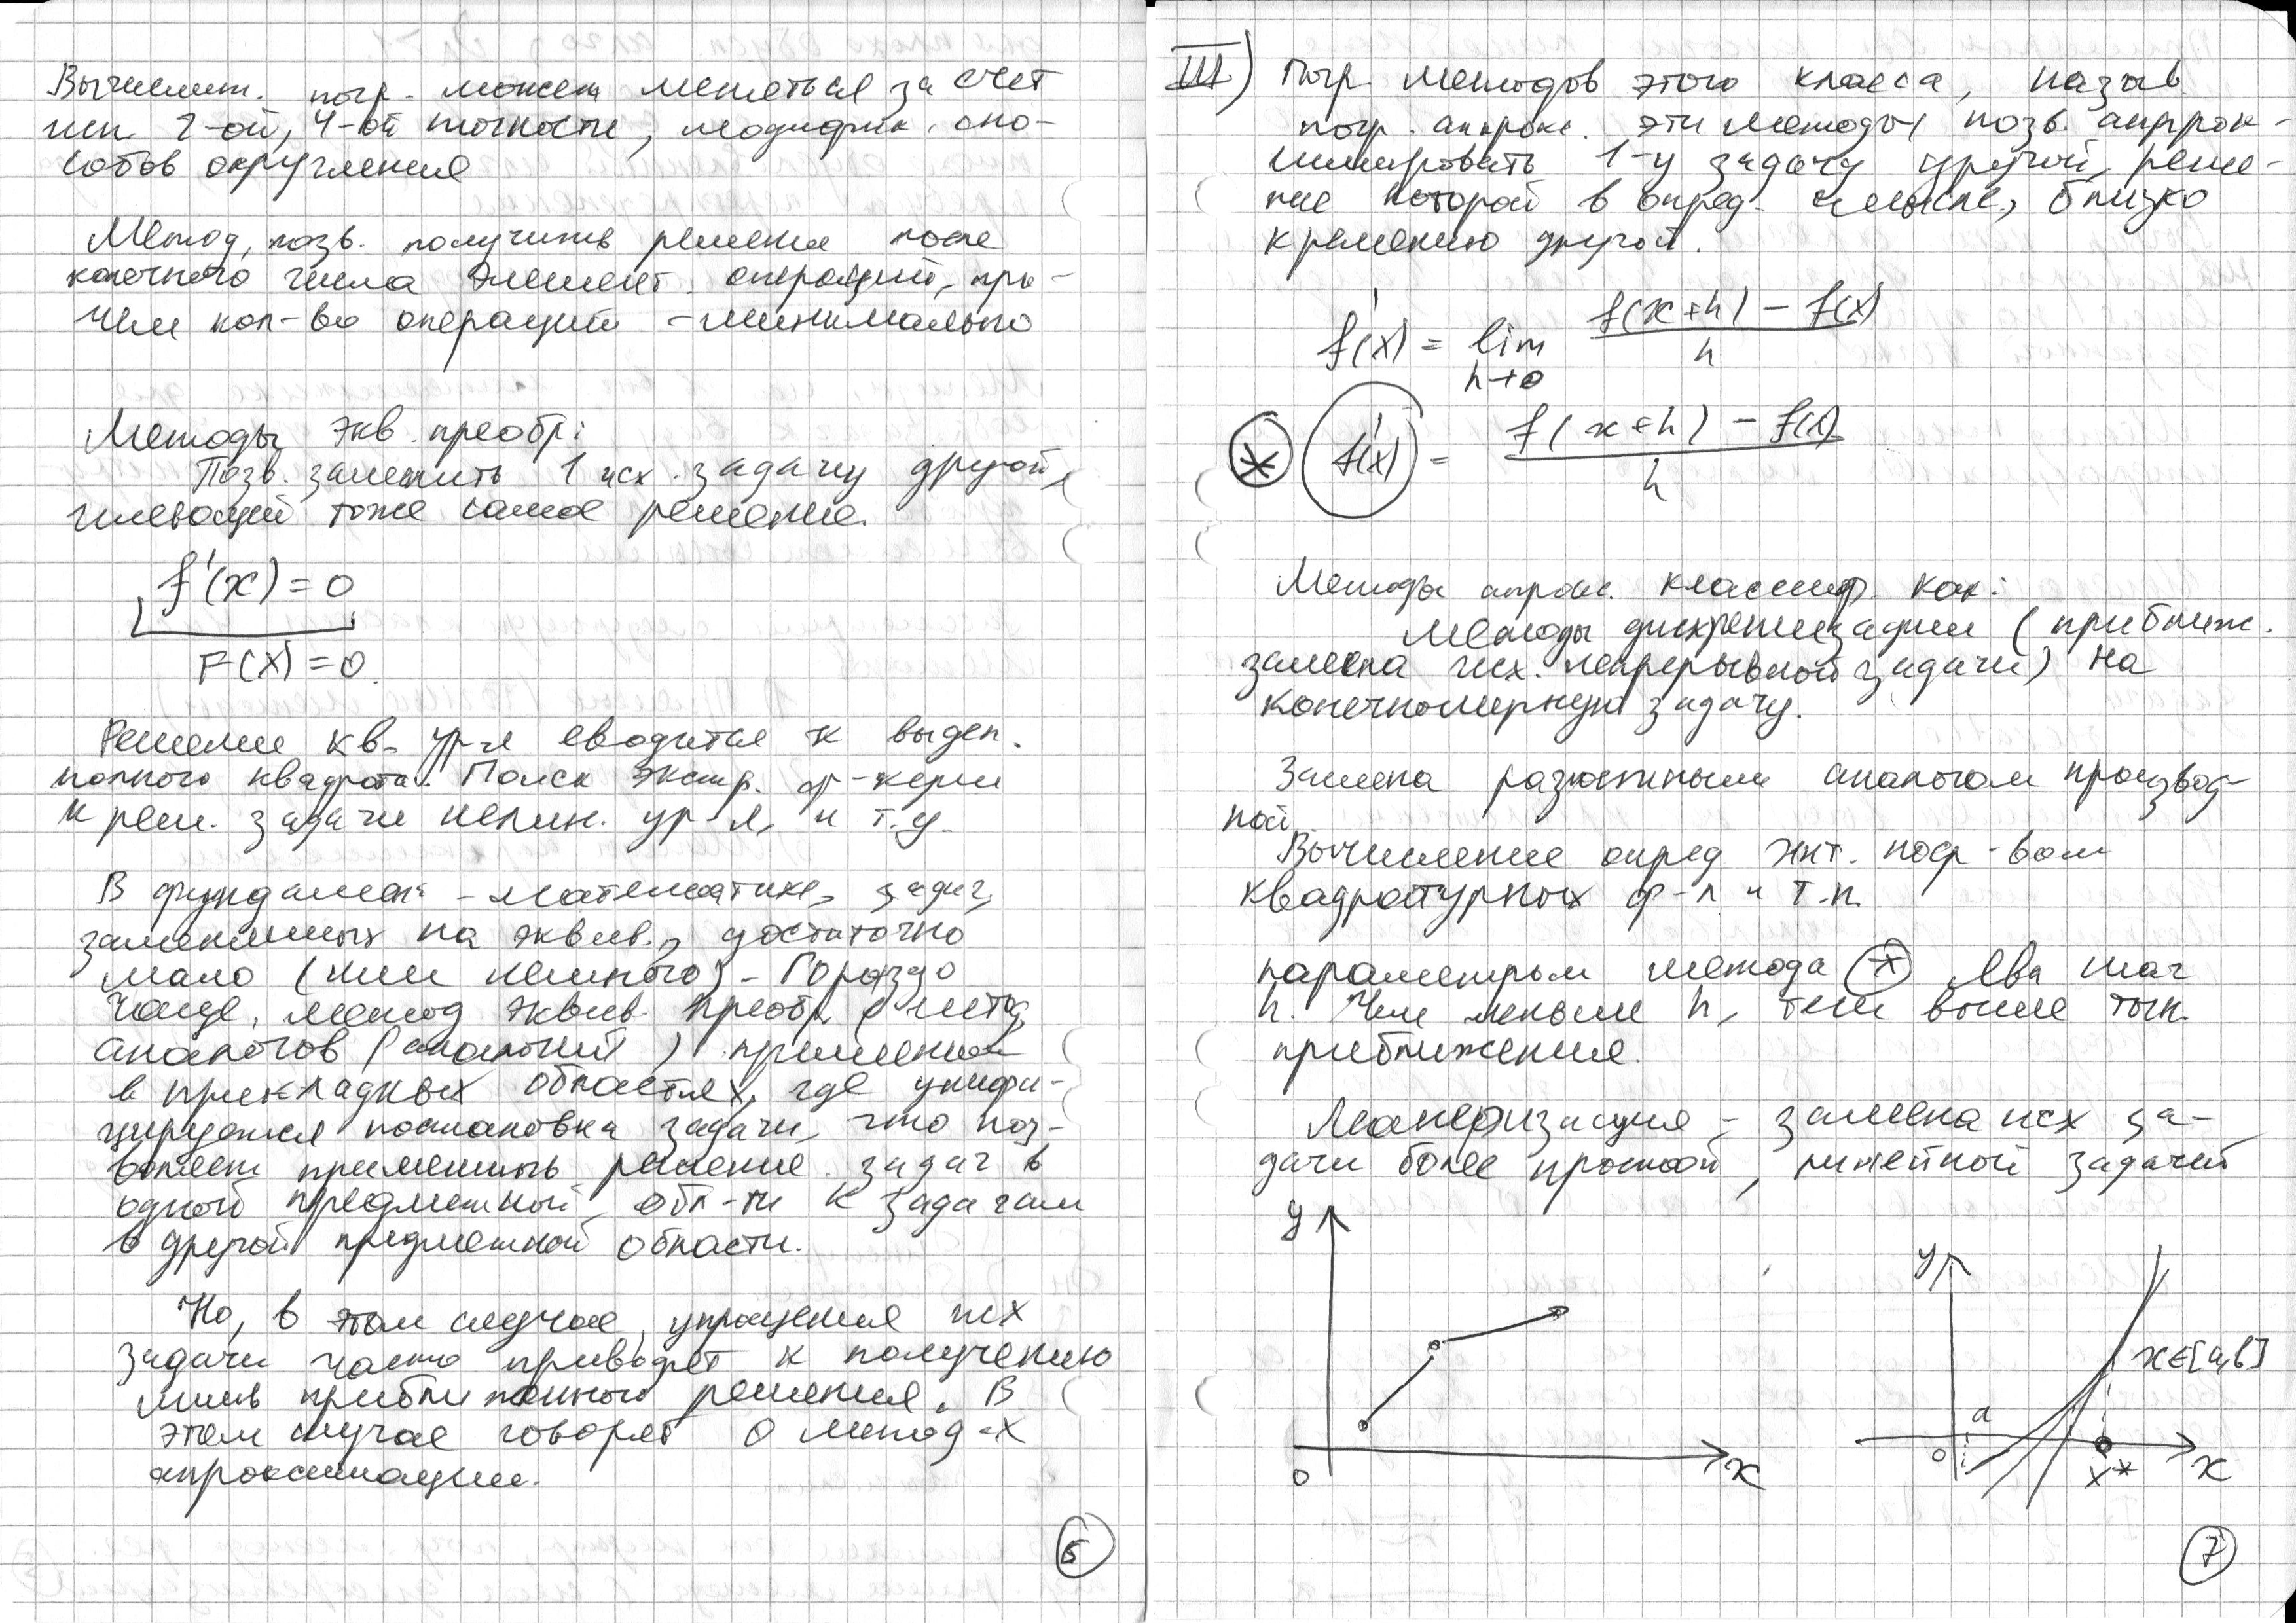 Вычислит. погр. может меняться за счет
исп. 2-ой, 4-ой точности, модифик. спо-
собов округления
Метод, позв. получить решение после
конечного числа элемент. операций, при-
чем кол-во операций - минимально
Методы экв. преобр:
Позв. заменить 1 исх. задачу другой,
имеющей тоже самое решение.
f'(x) = 0
F(x) = 0.
Решение кв. ур-я сводится к выдел.
полного квадрата. Поиск экстр. ф-ции
к реш. задачи нелин. ур-я, и т.д.
В фундамен. математике, задач,
замененных на эквив., достаточно
мало (или немного). Гораздо
чаще, метод эквив. преобр. и метод
аналогов (аналогий) применим
в прикладных областях, где унифи-
цируется постановка задачи, что поз-
воляет применить решение задач в
одной предметной обл-ти к задачам
в другой предметной области.
Но, в этом случае, упрощения исх
задачи часто приводят к получению
лишь приближенного решения. В
этом случае говорят о метод-х
апроксимации.
III) Погр. методов этого класса, назыв.
погр. аппрокс. эти методы позв. аппрок-
симировать 1-у задачу другой, реше-
ние которой в опред. смысле, близко
к решению другой.
f'(x) = lim f(x+h) - f(x)
h→0 h
* f'(x) = f(x+h) - f(x)
h
Методы апрокс. классиф. как:
Методы дискретизации (приближ.
замена исх. непрерывной задачи) на
конечномерную задачу.
Замена разностным аналогом производ-
ной.
Вычисление опред инт. поср-вом
квадратурных ф-л и т.п.
параметром метода * явл шаг
h. Чем меньше h, тем выше точн.
приближения.
Линеризация - замена исх за-
дачи более простой, линейной задачей
y
0 x
y
x∈[a,b]
a
0 x* x
7